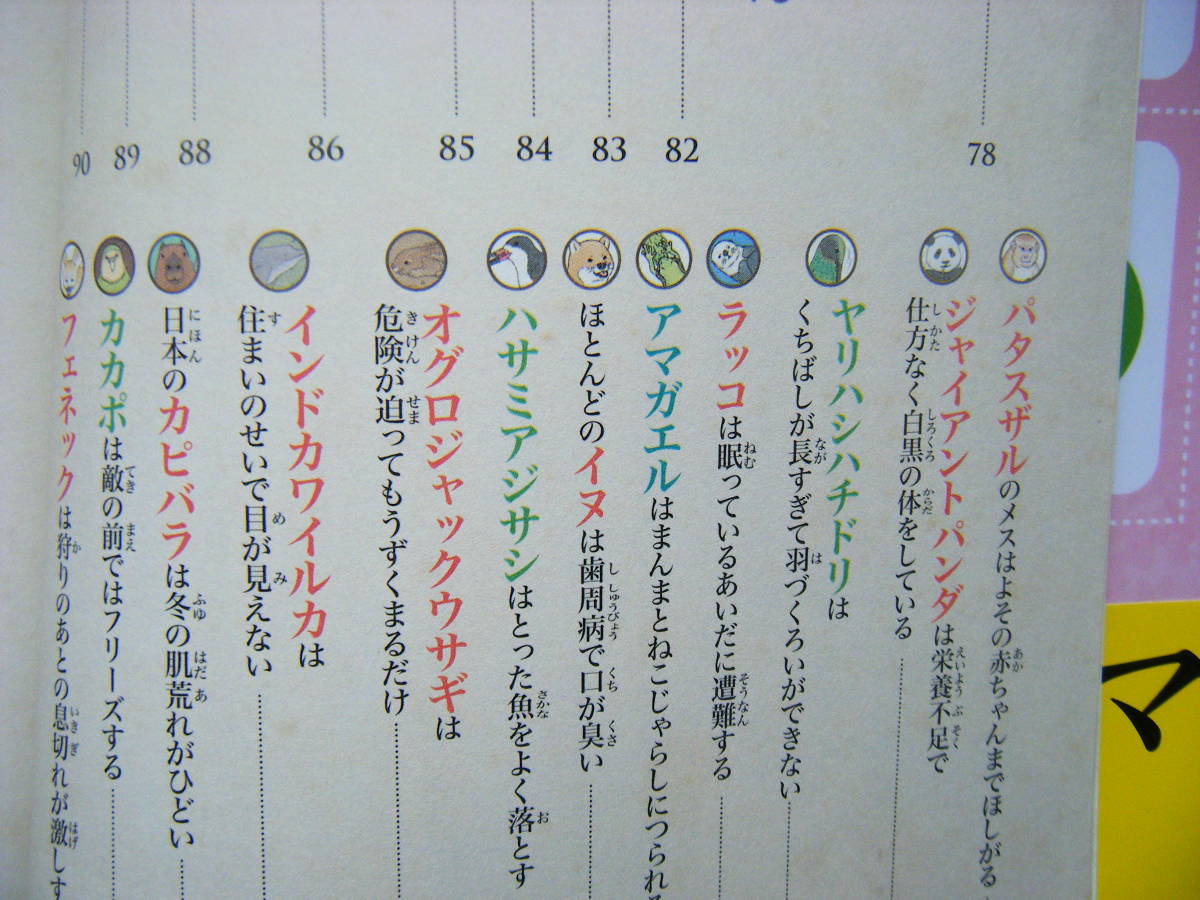 78
82
83
84
85
86
88
89
90
パタスザルのメスはよその赤ちゃんまでほしがる
ジャイアントパンダは栄養不足で
仕方なく白黒の体をしている
ヤリハシハチドリは
くちばしが長すぎて羽づくろいができない
ラッコは眠っているあいだに遭難する
アマガエルはまんまとねこじゃらしにつられる
ほとんどのイヌは歯周病で口が臭い
ハサミアジサシはとった魚をよく落とす
オグロジャックウサギは
危険が迫ってもうずくまるだけ
インドカワイルカは
住まいのせいで目が見えない
日本のカピバラは冬の肌荒れがひどい
カカポは敵の前ではフリーズする
フェネックは狩りのあとの息切れが激しす
マ